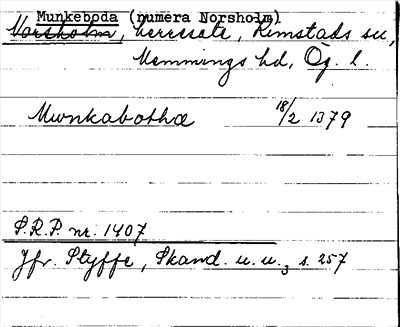 Munkeboda (numera Norsholm)
Norsholm, herresäte, Kimstads sn,
Memmings hd, Ög. l.
Munkabothæ 18/2 1379
S.R.P. nr. 1407
Jfr. Styffe, Skand. u. u., s. 257